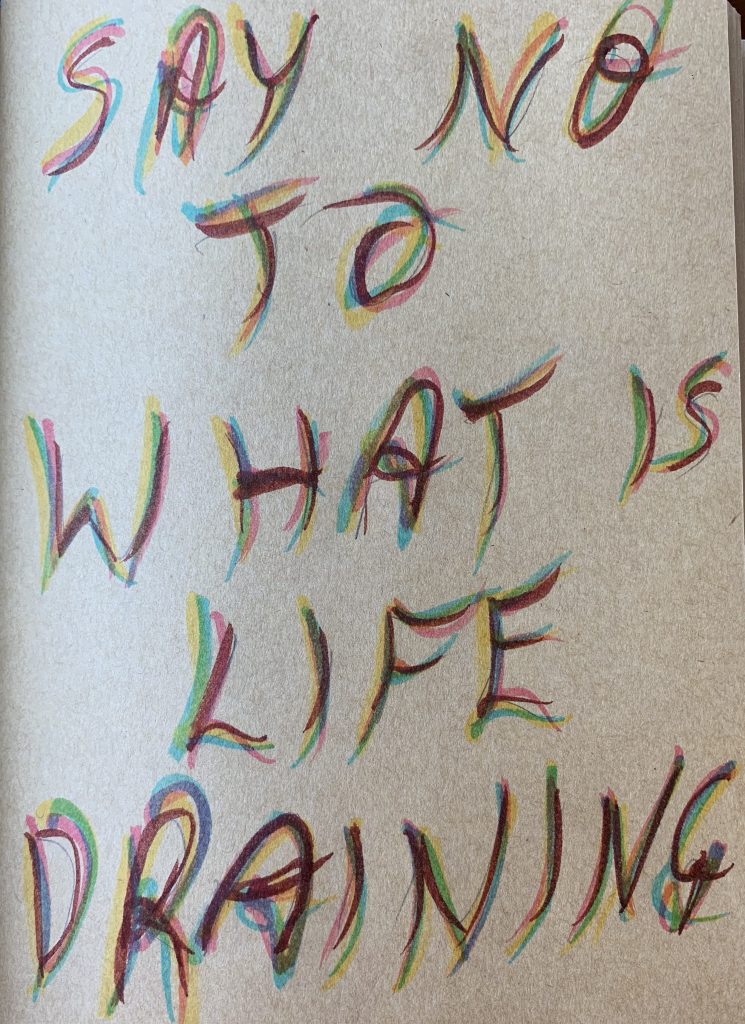 SAY NO
TO
WHAT IS
LIFE
DRAINING